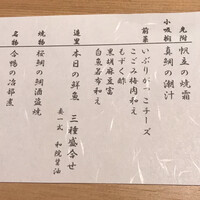 先附 帆立の焼霜
小吸物 真鯛の潮汁
前菜 いぶりがっこチーズ
こごみ梅肉和え
もずく酢
黒胡麻豆富
白魚若布和え
造里 本日の鮮魚 三種盛合せ
妻一式 和院醤油
焼物 桜鯛の鯛酒盗焼
名物 合鴨の治部煮